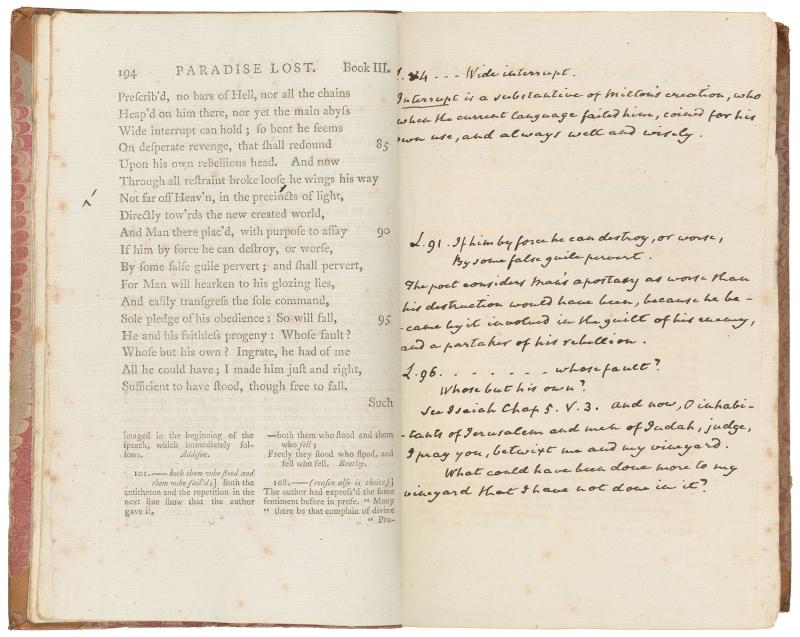 194 PARADISE LOST. Book III.
Preſcrib'd, no bars of Hell, nor all the chains
Heap'd on him there, nor yet the main abyſs
Wide interrupt can hold ; ſo bent he ſeems
On deſperate revenge, that ſhall redound 85
Upon his own rebellious head. And now
Through all reſtraint broke looſe he wings his way
Not far off Heav'n, in the precincts of light,
Directly tow'rds the new created world,
And Man there plac'd, with purpoſe to aſſay 90
If him by force he can deſtroy, or worſe,
By ſome falſe guile pervert ; and ſhall pervert,
For Man will hearken to his glozing lies,
And eaſily tranſgreſs the ſole command,
Sole pledge of his obedience : So will fall, 95
He and his faithleſs progeny : Whoſe fault ?
Whoſe but his own ? Ingrate, he had of me
All he could have ; I made him juſt and right,
Sufficient to have ſtood, though free to fall.
Such
imaged in the beginning of the
ſpeech, which immediately fol-
lows. Addiſon.
101.—— both them who ſtood and
them who fail'd;] Both the
antitheton and the repetition in
the next line ſhow that the author
gave it,
—both them who ſtood and them
who fell ;
Freely they ſtood who ſtood, and
fell who fell. Bentley.
108.——(reaſon alſo is choice)]
The author had expreſs'd the ſame
ſentiment before in proſe. " Many
" there be that complain of divine
" Pro-
L. 84 - - - Wide interrupt.
Interrupt is a substantive of Milton's creation, who
when the current language failed him, coined for his
own use, and always well and wisely.
L. 91. If him by force he can destroy, or worse,
By some false guile pervert.
The poet considers man's apostasy as worse than
his destruction would have been, because he be-
-came by it involved in the guilt of his enemy,
and a partaker of his rebellion.
L. 96. . . . . . . . whose fault?
Whose but his own?
See Isaiah Chap 5. V. 3. And now, O inhabi-
-tants of Jerusalem and men of Judah, judge,
I pray you, betwixt me and my vineyard.
What could have been done more to my
vineyard that I have not done in it?